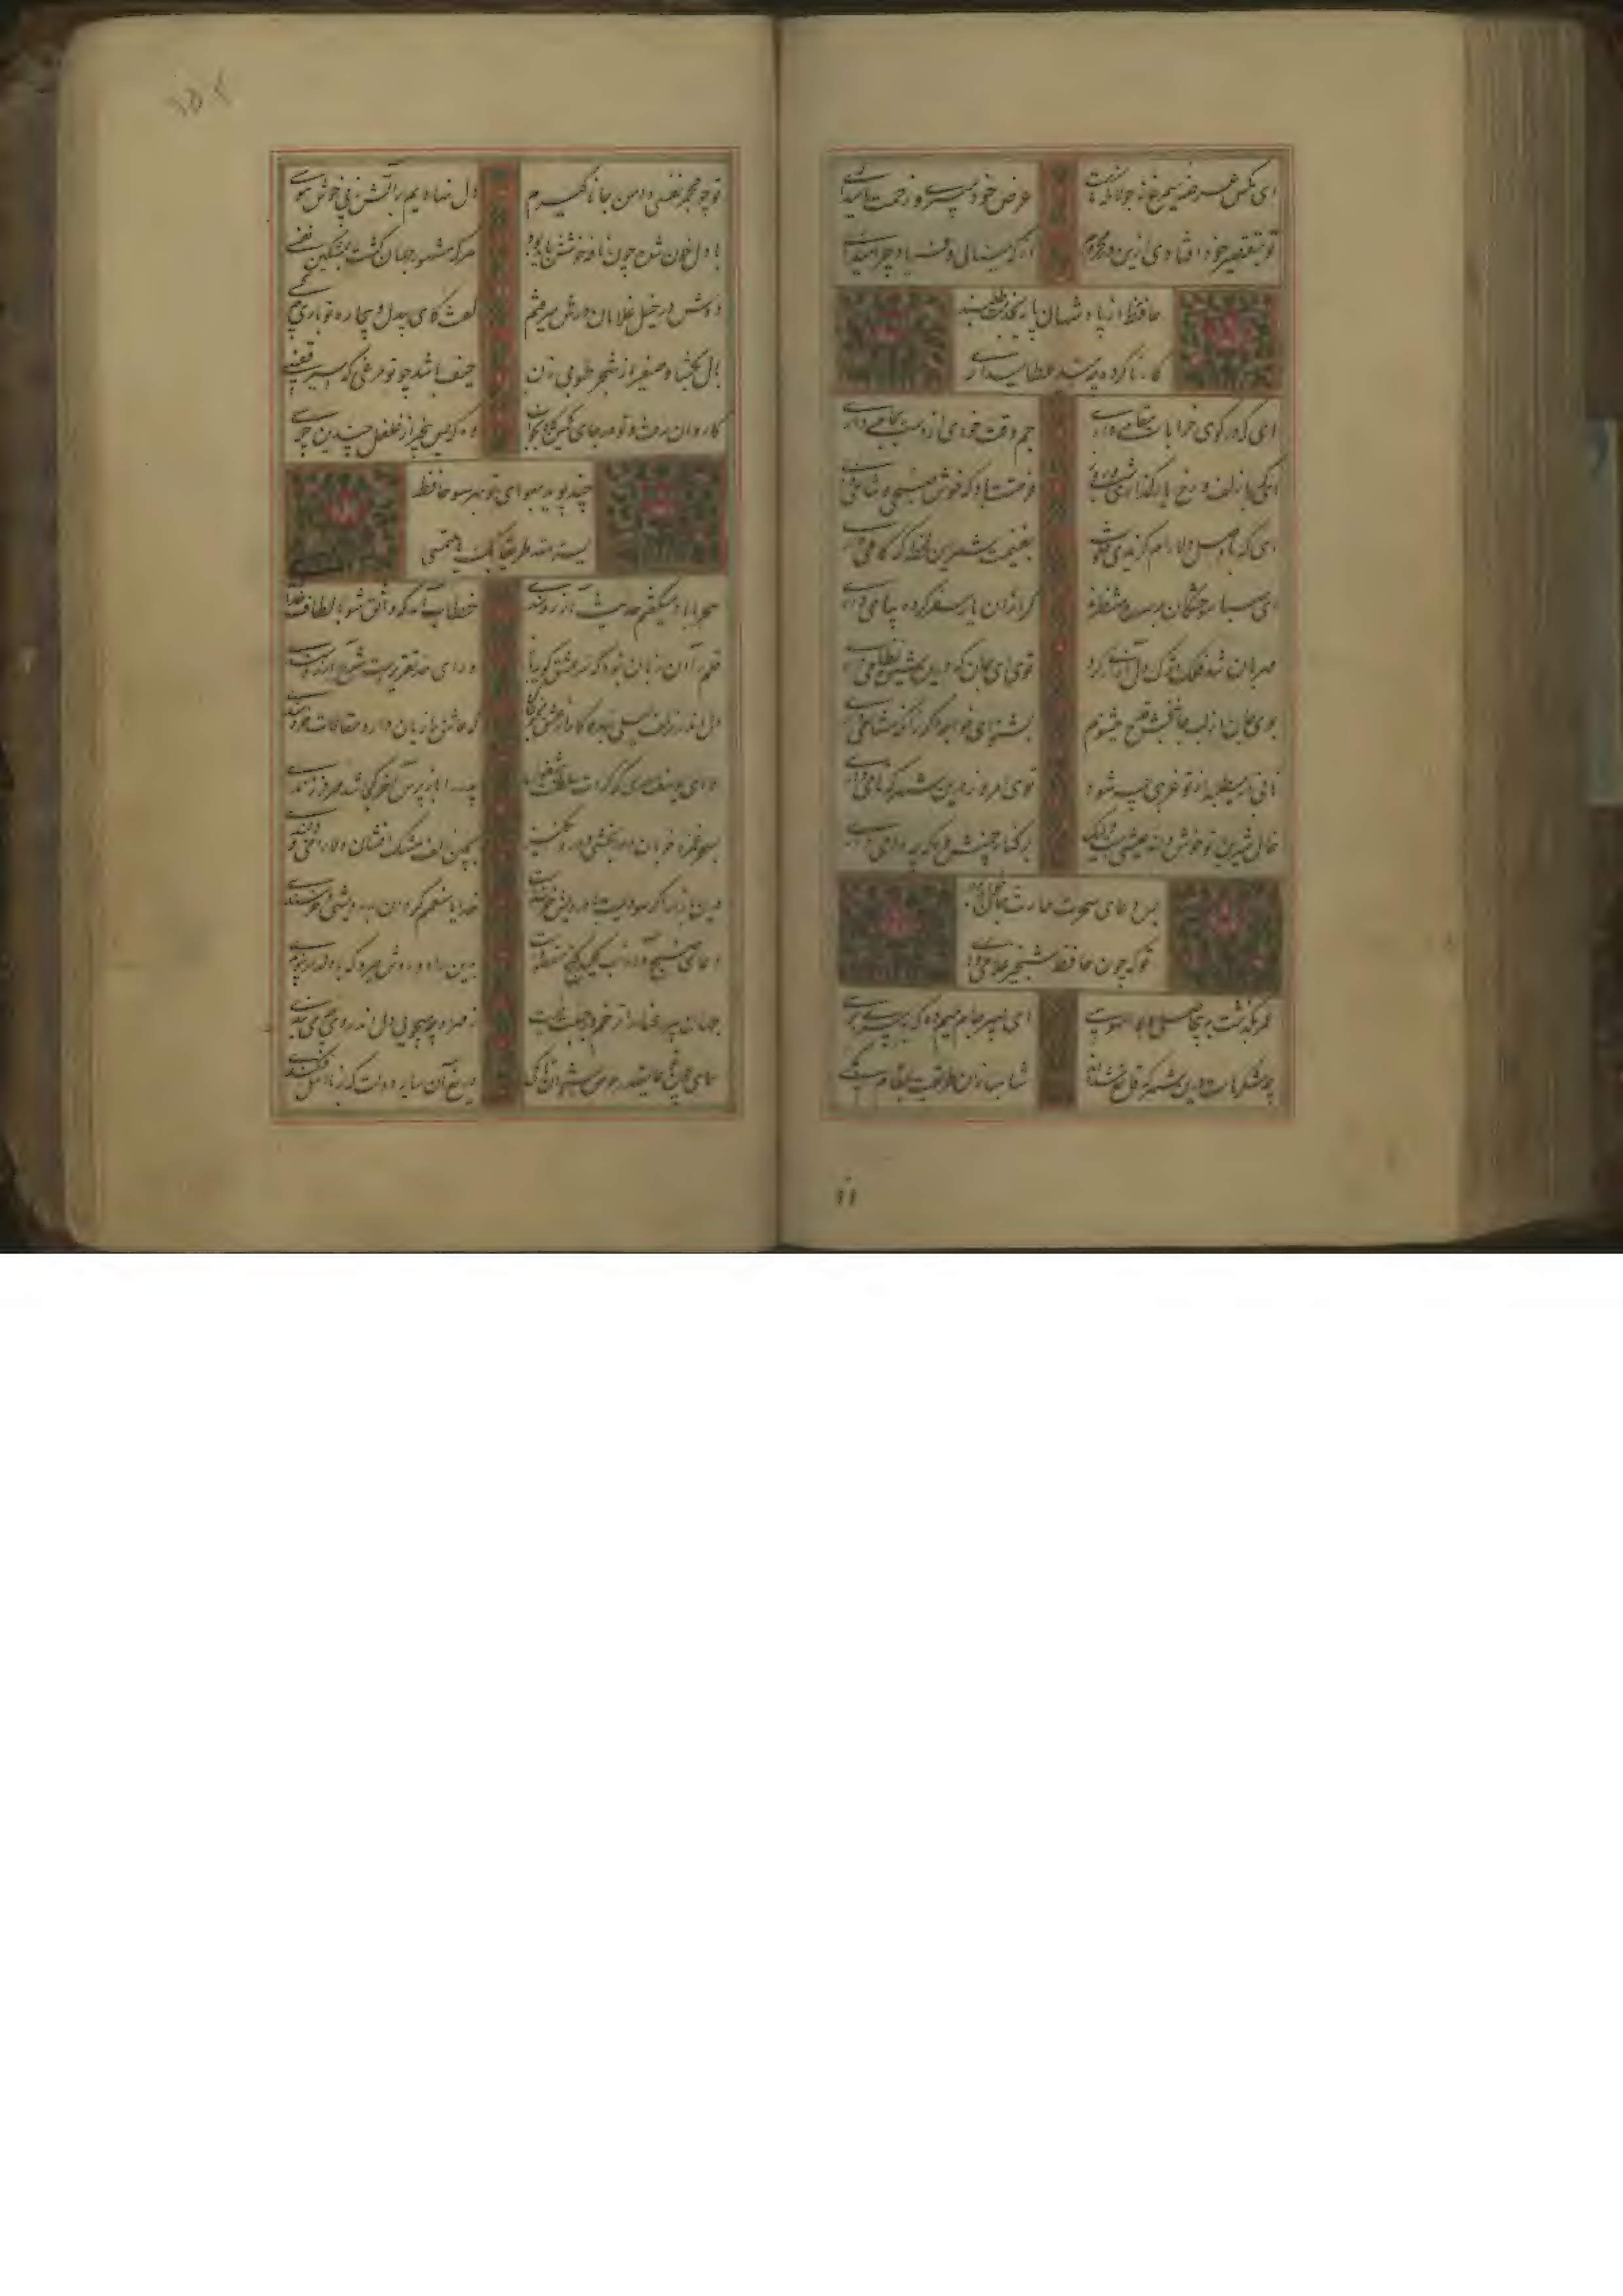 ای مگس عرصه سیمرغ نه جولانگه تست
عرض خود می‌بری و زحمت ما میداری
تو بتقصیر خود افتادی ازین در محروم
از که مینالی و فریاد چرا میداری
حافظ از پادشهان پایه بخدمت طلبند
کار ناکرده چه امید عطا میداری
ای که در کوی خرابات مقامی داری
جم وقت خودی ار دست بجامی داری
ای که با زلف و رخ یار گذاری شب و روز
فرصتت باد که خوش صبحی و شامی داری
ای که با وصل دلارام گزیدی خلوت
بغنیمت شمر این لحظه که کامی داری
ای صبا سوختگان بر سر ره منتظرند
گر از آن یار سفر کرده پیامی داری
مهربان شد فلک و ترک دل آزاری کرد
توی ای جان که درین شیوه نظامی داری
بوی جان از لب جانبخش قدح میشنوم
بشنو ای خواجه اگر زانکه مشامی داری
نامی ار میطلبد از تو غریبی چه شود
توی امروز درین شهر که نامی داری
خال شیرین تو خوش دانه عیشیست ولیک
بر کنار چمنش وه که چه دامی داری
بس دعای سحرت حارس جان خواهد بود
تو که چون حافظ شبخیز غلامی داری
عمر بگذشت به بیحاصلی و بوالهوسی
ای پسر جام میم ده که به پیری برسی
چه شکرهاست درین شهر که قانع شده‌اند
شاهبازان طریقت بمقام مگسی
۱۱
تو چو مجمر نفسی دامن جانان گیرم
دل نهادیم بر آتش ز پی خوش نفسی
با دل خون شده چون نافه خوشش باید بود
هر که مشهور جهان گشت بمشکین نفسی
دوش در خیل غلامان درش میرفتم
گفت کای بیدل و بیچاره تو باری چه کسی
بال بگشا و صفیر از شجر طوبی زن
حیف باشد چو تو مرغی که اسیر قفسی
کاروان رفت و تو در جای کمین‌گاه بخواب
وه که بس بیخبر از غلغل چندین جرسی
چند پوید بهوای تو بهر سو حافظ
یسر الله طریقا بک یا ملتمسی
سحر با باد میگفتم حدیث آرزومندی
خطاب آمد که واثق شو بالطاف خداوندی
قلم را آن زبان نبود که سر عشق گوید باز
ورای حد تقریرست شرح آرزومندی
دل اندر زلف لیلی بند و کار از عشق مجنون کن
که عاشق را زیان دارد مقالات خردمندی
الا ای یوسف مصری که کردت سلطنت مشغول
پدر را باز پرس آخر کجا شد مهر فرزندی
بسحر غمزه خوبان دوا بخشی و درد انگیز
بچین زلف مشک افشان دلارامی و دلبندی
درین بازار اگر سودیست با درویش خرسندست
خدایا منعمم گردان بدرویشی و خرسندی
دعای صبح و آه شب کلید گنج مقصودست
بدین راه و روش میرو که با دلدار پیوندی
جهان پیر رعنا را ترحم در جبلت نیست
ز مهر او چه میجویی دل اندر وی چه می‌بندی
همای چون تو عالیقدر حرص استخوان تا کی
دریغ آن سایه دولت که بر نااهل افکندی